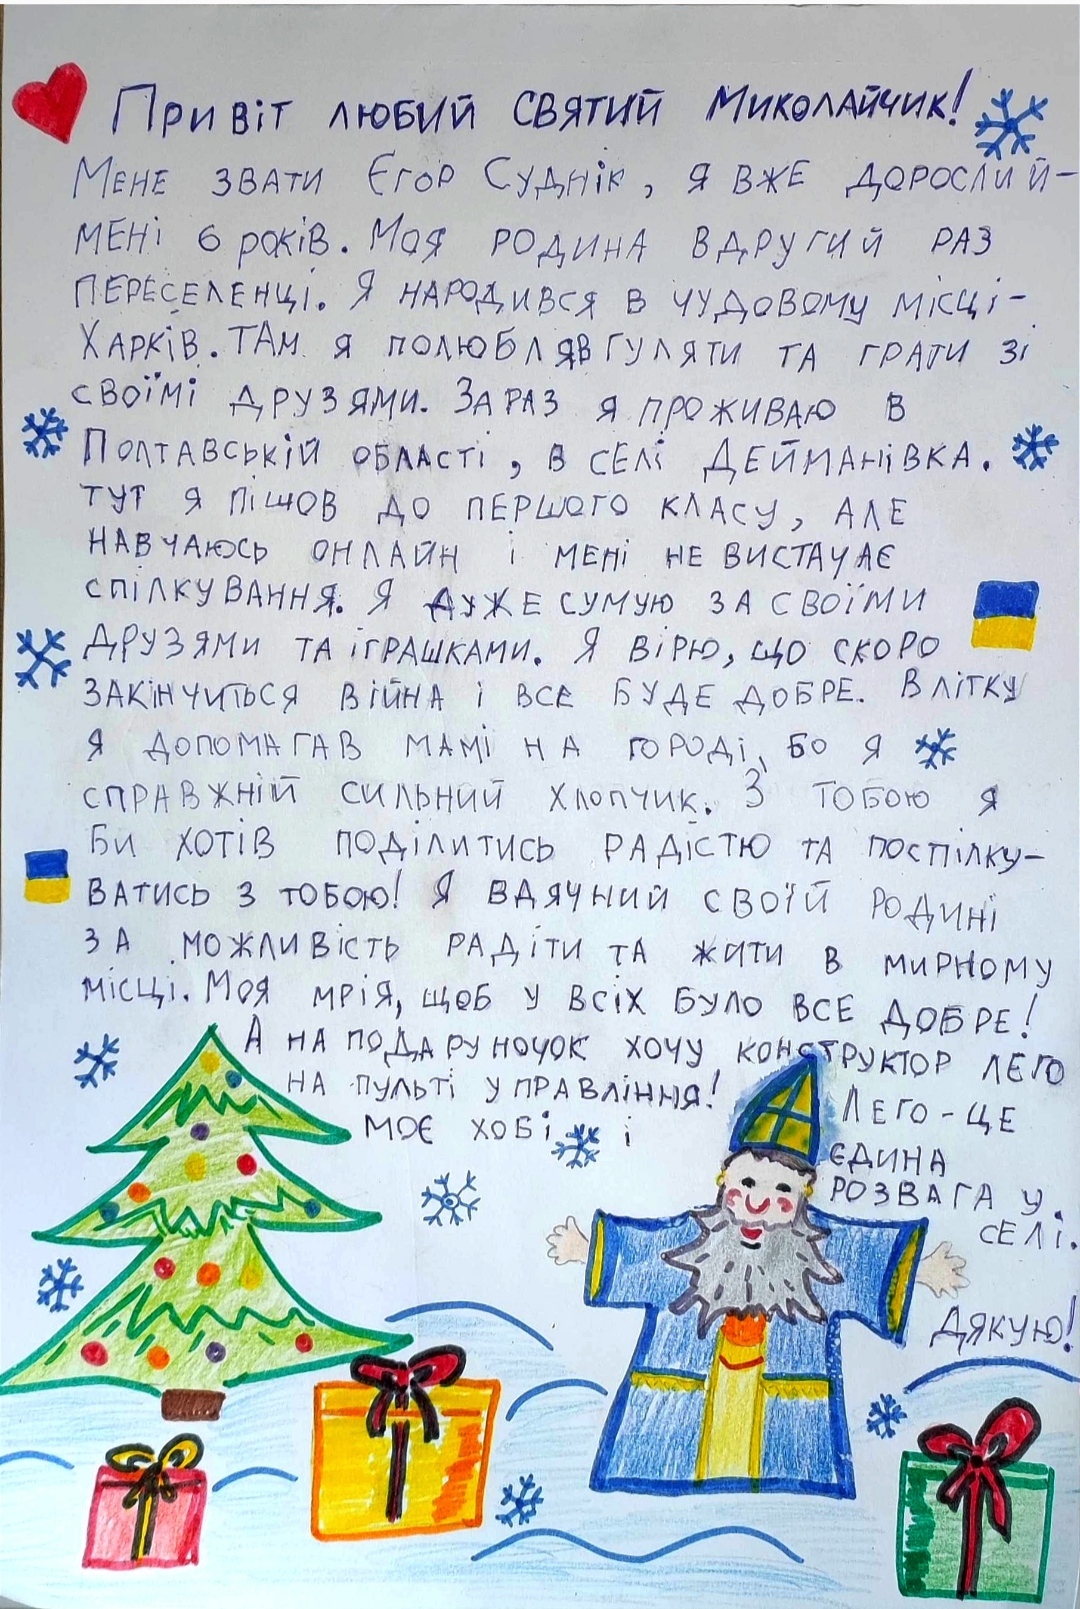 Привіт любий Святий Миколайчик!
Мене звати Єгор Суднік, я вже дорослий-
мені 6 років. Моя родина вдругий раз
переселенці. Я народився в чудовому місці-
Харків. Там я полюбляв гуляти та грати зі
своїмі друзями. Зараз я проживаю в
Полтавській області, в селі Дейманівка.
Тут я пішов до першого класу, але
навчаюсь онлайн і мені не вистачає
спілкування. Я дуже сумую за своїми
друзями та іграшками. Я вірю, що скоро
закінчиться війна і все буде добре. Влітку
я допомагав мамі на городі, бо я
справжній сильний хлопчик. З тобою я
би хотів поділитись радістю та поспілку-
ватись з тобою! Я вдячний своїй родині
за можливість радіти та жити в мирному
місці. Моя мрія, щоб у всіх було все добре!
А на подаруночок хочу конструктор лего
на пульті управління! Лего-це
моє хобі і єдина
розвага у
селі.
Дякую!